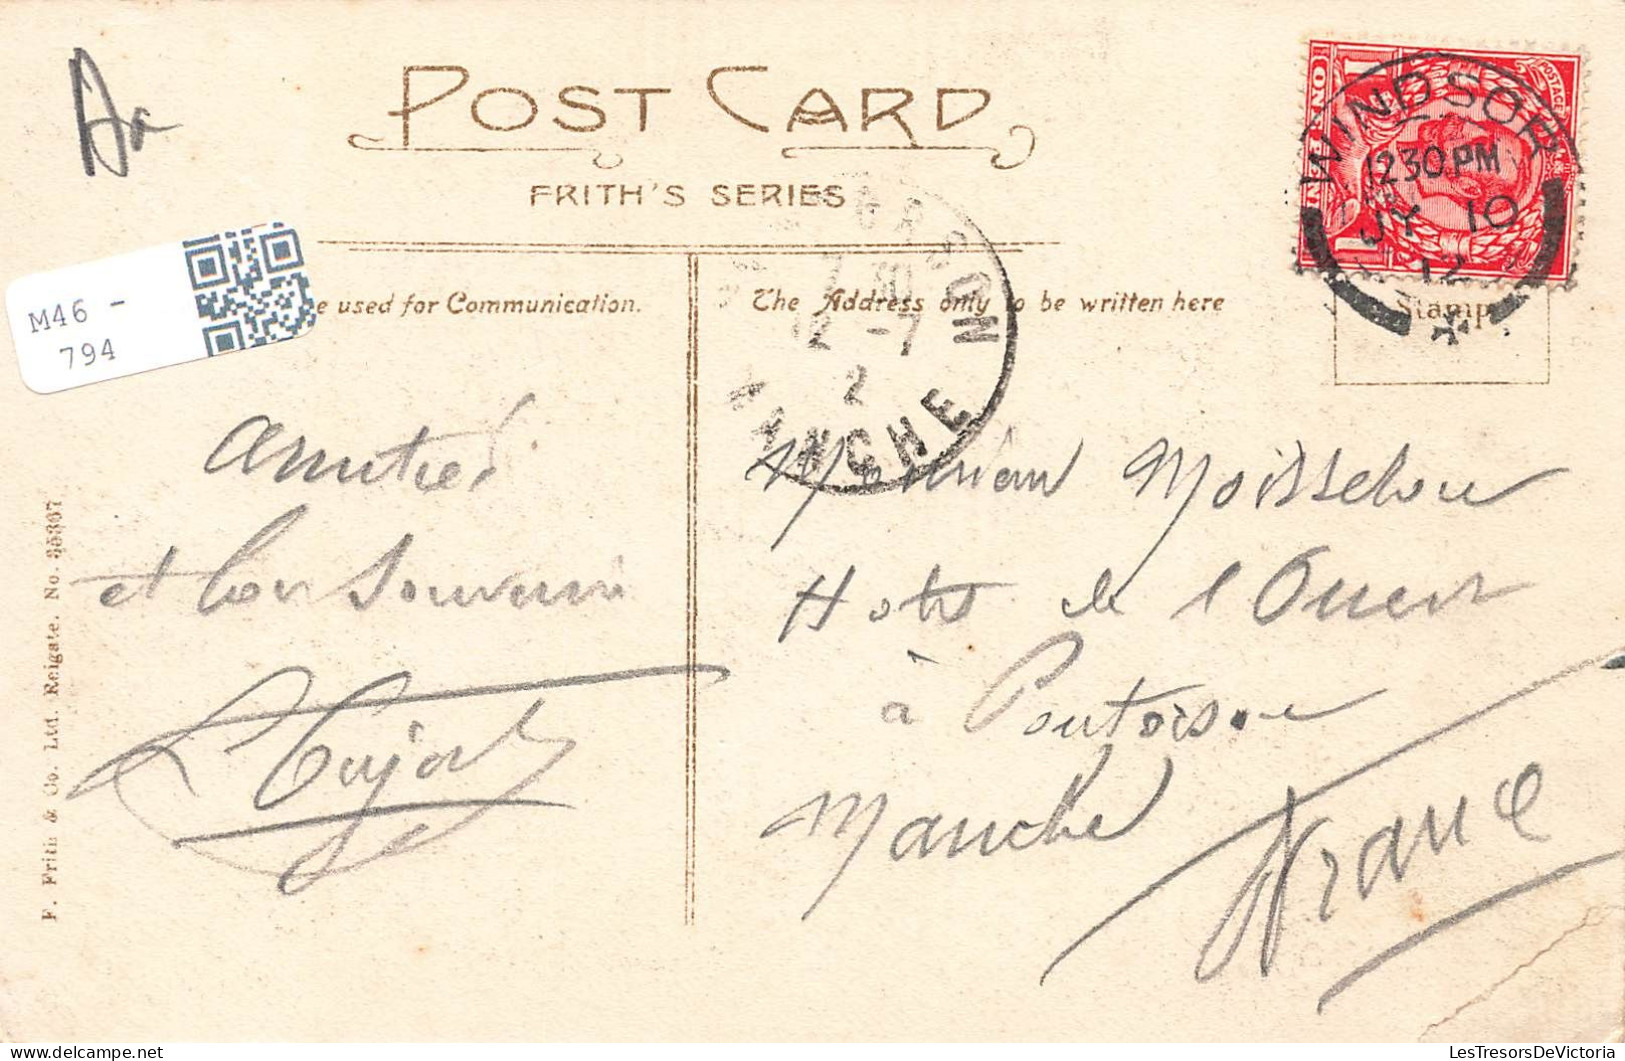 POST CARD
FRITH'S SERIES
M46 -
794
e used for Communication.
The Address only to be written here
Stamp
WINDSOR
1230 PM
JY 10
12
ONE PENNY
POSTAGE
12 -7
MANCHE
Amitiés
et bon Souvenir
Monsieur
Hotel de l'Ouest
à Pontorson
Manche
France
F. Frith & Co. Ltd. Reigate. No. 35367
LesTresorsDeVictoria